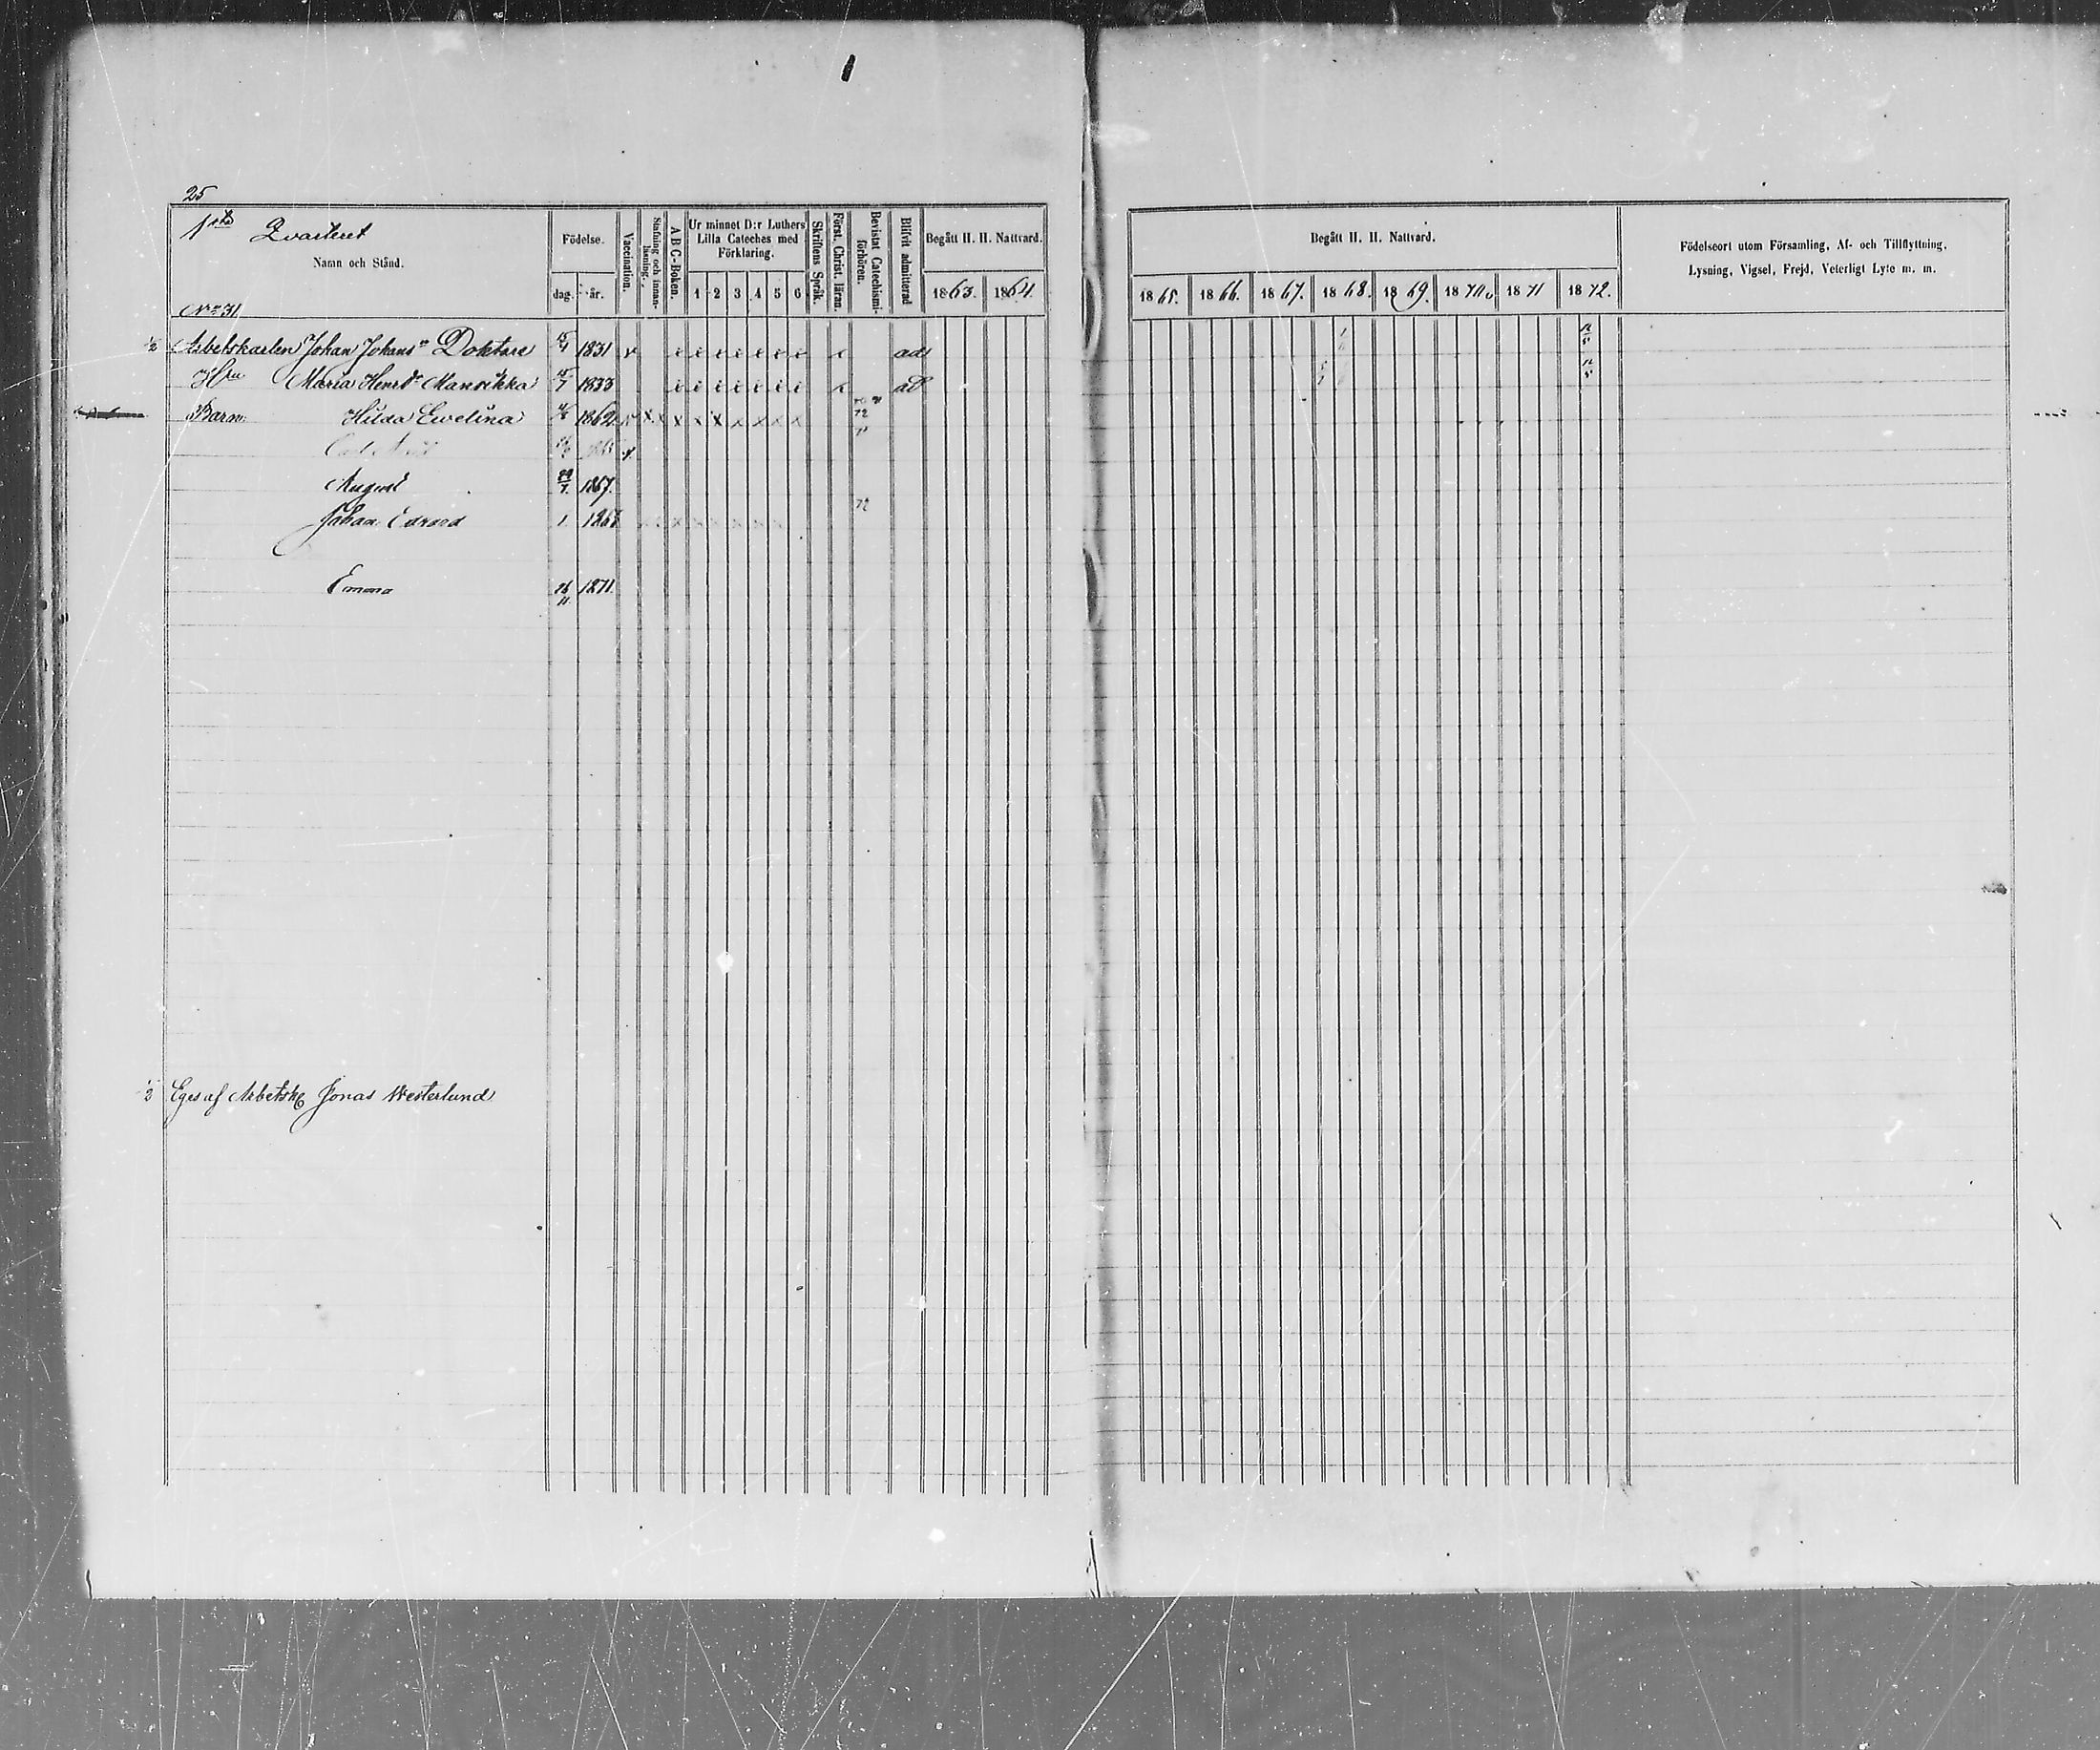 25
1sta Qvarteret
Namn och Stånd.
No 31
Födelse.
dag. år.
Vaccination.
Stafning och innanläsning.
A B C-Boken.
Ur minnet D:r Luthers Lilla Cateches med Förklaring.
1 2 3 4 5 6
Skriftens Språk.
Först. Christ. läran.
Bevistat Catechismi-förhören.
Blifvit admitterad
Begått H. H. Nattvard.
1863. 1864.
Begått H. H. Nattvard.
1865. 1866. 1867. 1868. 1869. 1870. 1871 1872.
Födelseort utom Församling, Af- och Tillflyttning,
Lysning, Vigsel, Frejd, Veterligt Lyte m. m.
1/2 Arbetskarlen Johan Johans:n Doktare 1831 v ad
Hru Maria Henrd:r Mansikka 1833 ad
Barn: Hilda Ewelina 1862 x x x x x x x x x 72
Carl
August 1867.
Johan Edvard 1 72
Emma 26/11 1871.
1/2 Eges af Arbetsk Jonas Westerlund